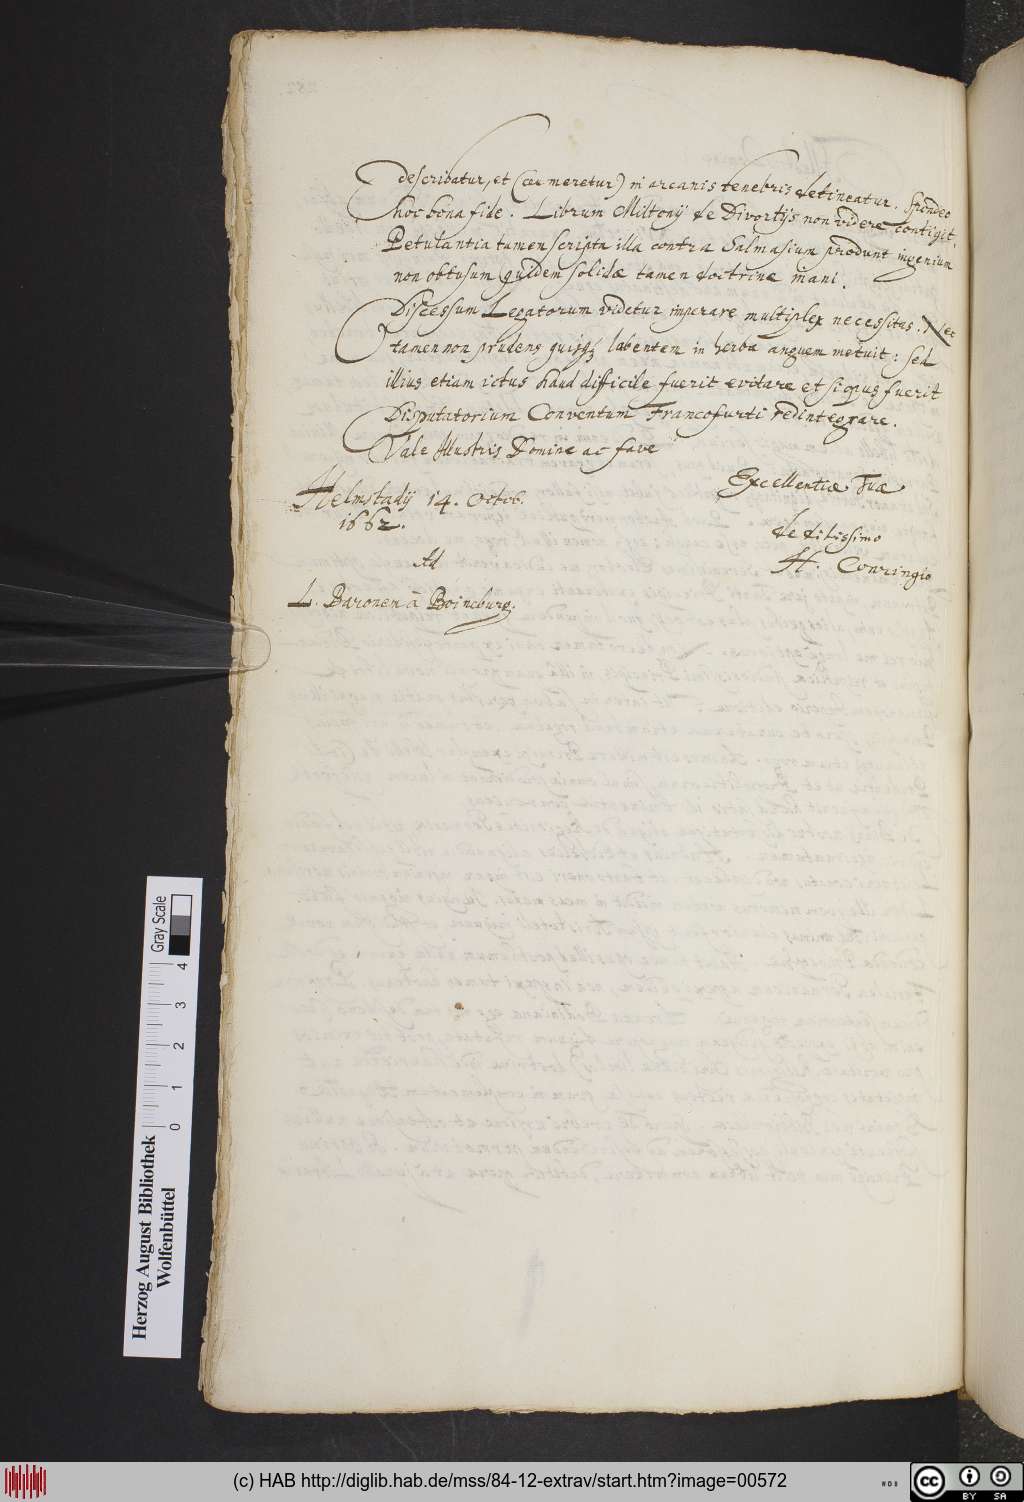 describatur, et (ceu meretur) in arcanis tenebris detineatur. Spondeo
hoc bona fide. Librum Miltonij de Divortijs non videre contigit.
Petulantia tamen scripta illa contra Salmasium produnt ingenium
non obtusum quidem solidæ tamen doctrinæ inani.
Discessum Legatorum videtur imperare multiplex necessitas. Nec
tamen non prudens quisq; labentem in herba anguem metuit: sed
illius etiam ictus haud difficile fuerit evitare et siquis fuerit
Disputatorium Conventum Francofurti redintegrare.
Vale Illustris Domine ac fave
Excellentiæ Tuæ
Helmstadij 14. Octob.
1662.
deditissimo
H. Conringio
Ad
L. Baronem à Boineburg.
Gray Scale
0 1 2 3 4
Herzog August Bibliothek
Wolfenbüttel
(c) HAB http://diglib.hab.de/mss/84-12-extrav/start.htm?image=00572
WDB
cc BY SA